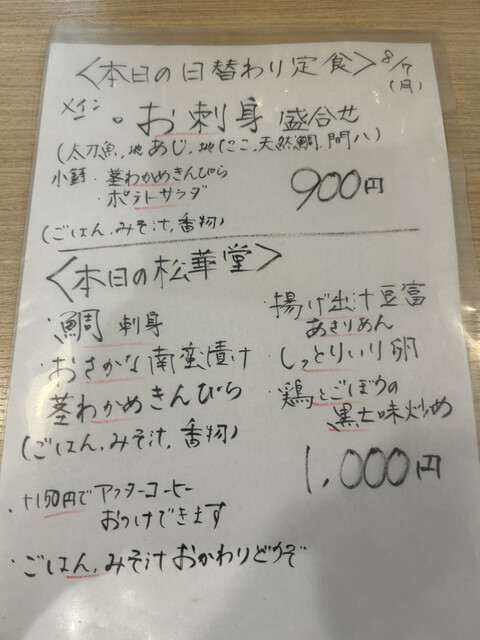 <本日の日替わり定食> 8/7(月)
メイン
・お刺身 盛合せ
(太刀魚、地あじ、地たこ、天然鯛、間八)
小鉢・茎わかめきんぴら
・ポテトサラダ
900円
(ごはん、みそ汁、香物)
<本日の松華堂>
・鯛 刺身
・おさかな南蛮漬け
茎わかめきんぴら
(ごはん、みそ汁、香物)
・揚げ出汁豆富
あさりあん
・しっとりいり卵
・鶏とごぼうの
黒七味炒め
1,000円
・+150円でアフターコーヒー
おつけできます
・ごはん、みそ汁おかわりどうぞ